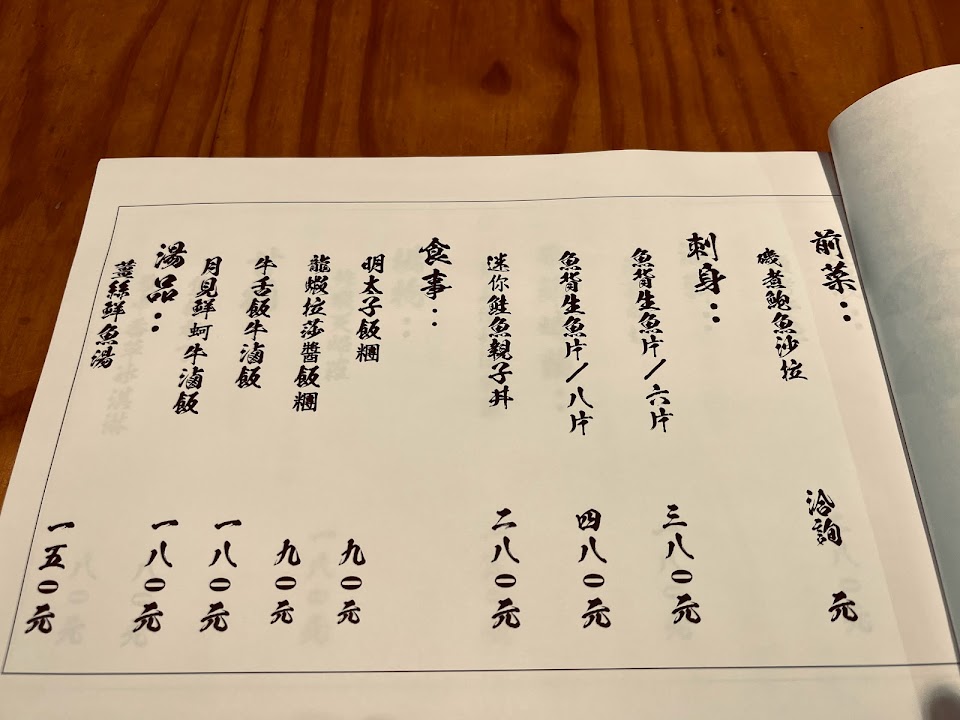 前菜：
磯煮鮑魚沙拉 洽詢 元
刺身：
魚背生魚片/六片 三八0元
魚背生魚片/八片 四八0元
迷你鮭魚親子丼 二八0元
食事：
明太子飯糰 九0元
龍蝦拉莎醬飯糰 九0元
牛舌飯牛滷飯 一八0元
月見鮮蚵牛滷飯 一八0元
湯品：
薑絲鮮魚湯 一五0元